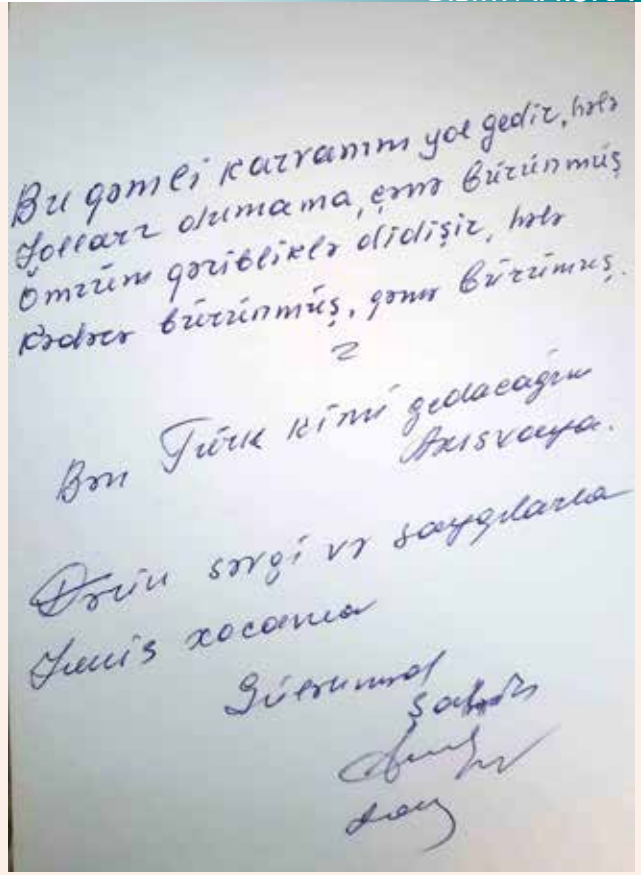 Bu qəmli karvanım yol gedir, hələ
Yolları dumama, çənə bürünmüş
Ömrüm qəribliklə didişir, hələ
Kədərə bürünmüş, qəmə bürünmüş.
2
Bən Türk kimi gedacağım
Axısvaya.
Dərin sərgi və sayqılarla
Yunis xocama
Güləhməd
Şahin